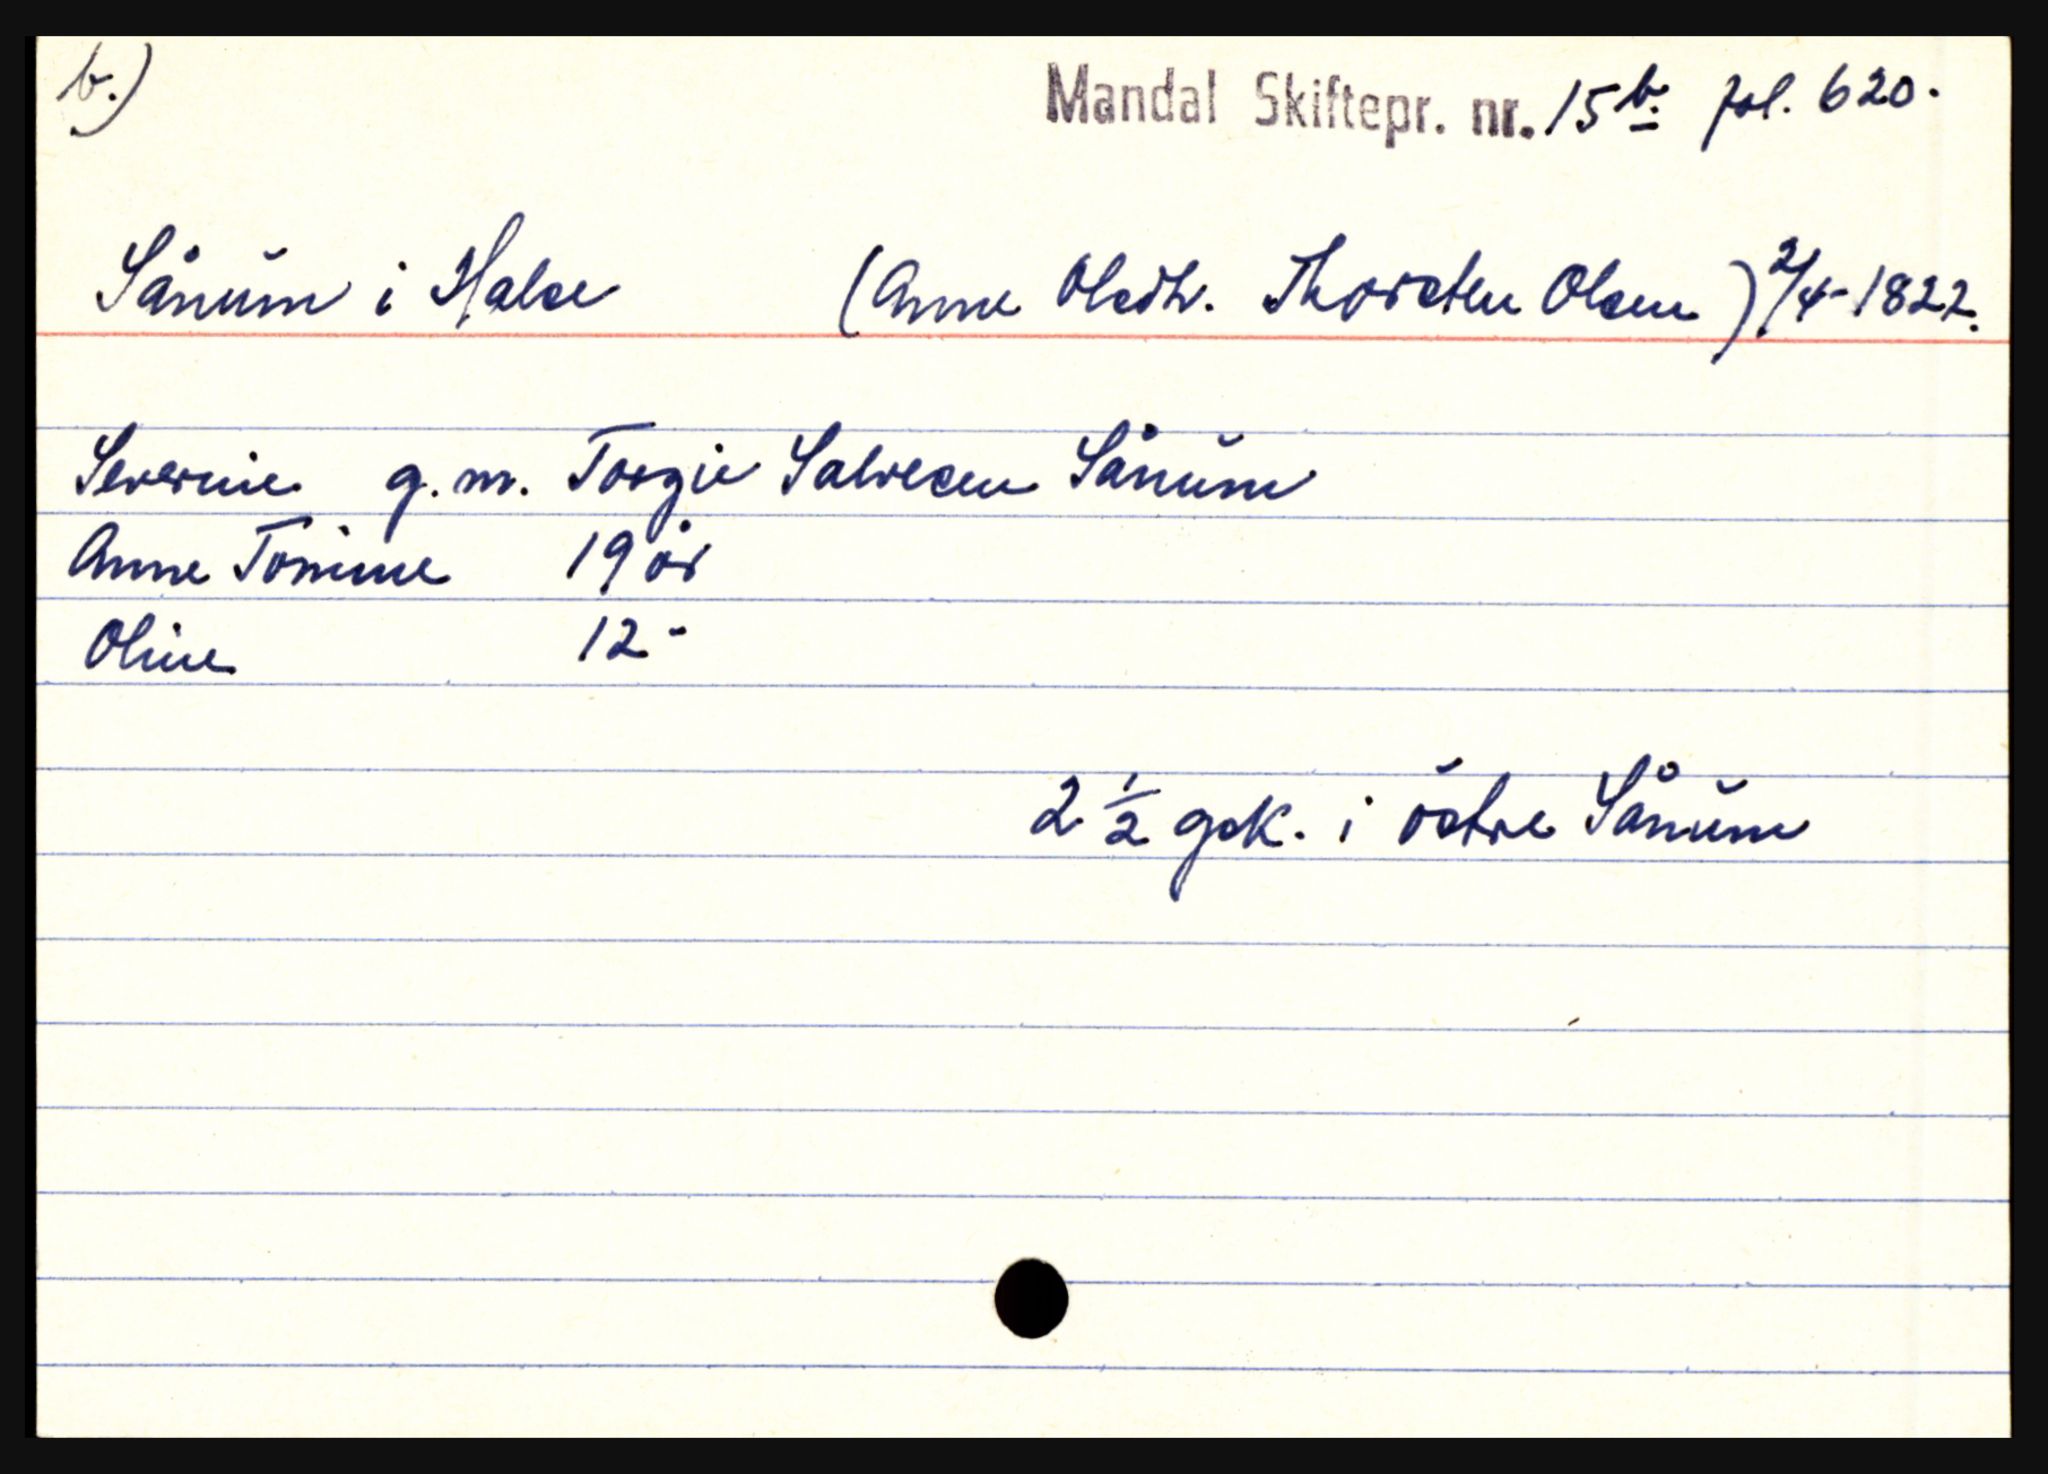 b.) Mandal Skiftepr. nr. 15 b. fol. 620.
Sånum i Halse (Anne Olsdtr. Thorsten Olsen) 2/4-1822.
Severine g.m. Torgie Salvesen Sånum
Anne Tomine 19 år
Oline 12 -
2 1/2 gsk. i östre Sånum